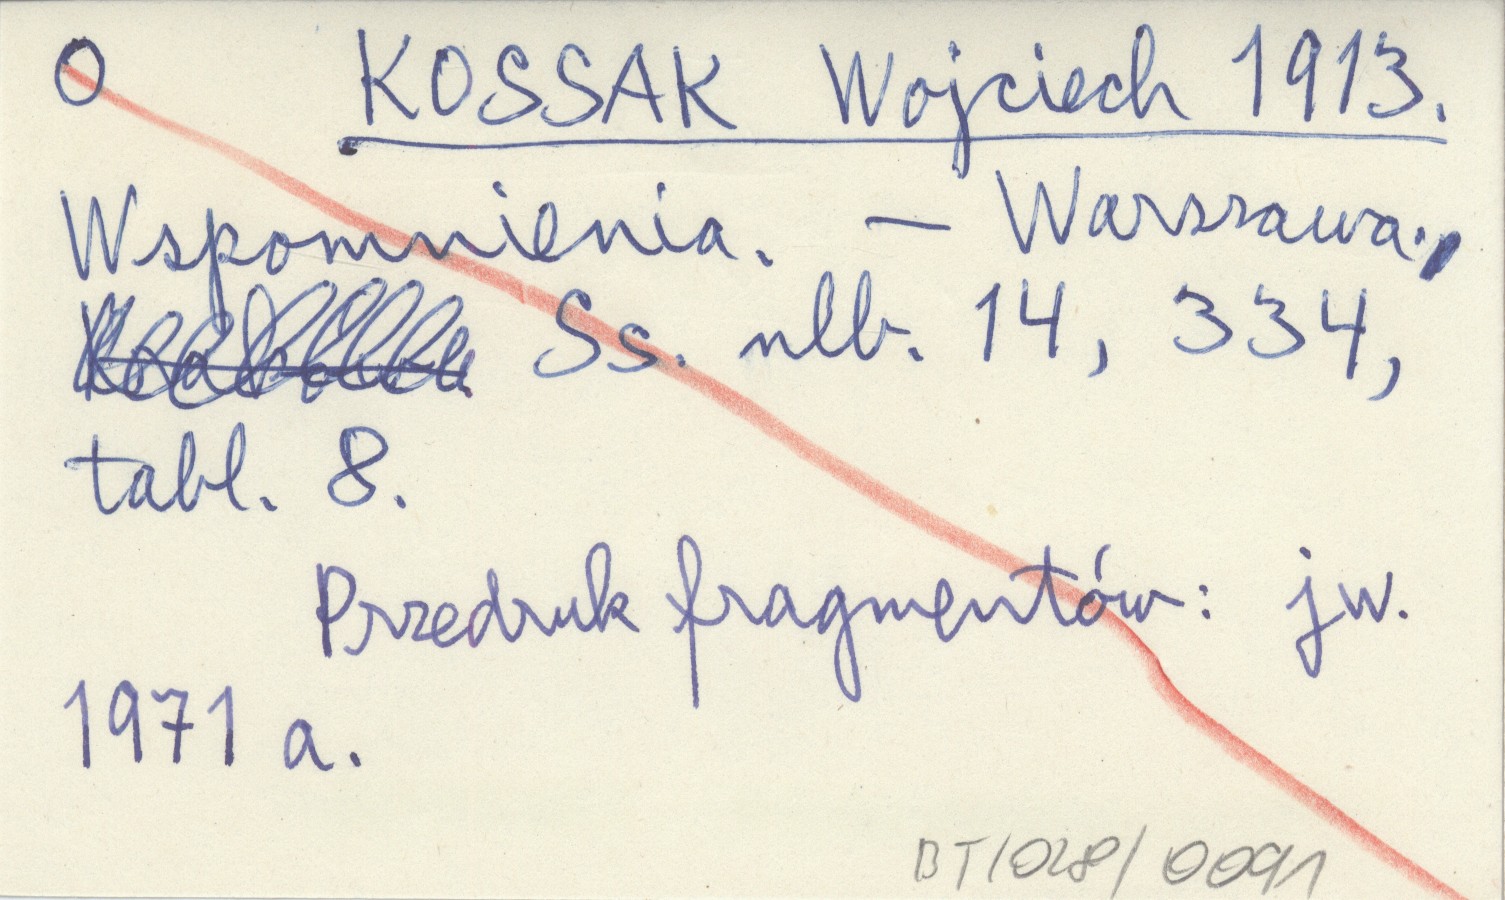 O KOSSAK Wojciech 1913.
Wspomnienia. — Warszawa.,
Ss. nlb. 14, 334,
tabl. 8.
Przedruk fragmentów: jw.
1971 a.
BT/028/0091